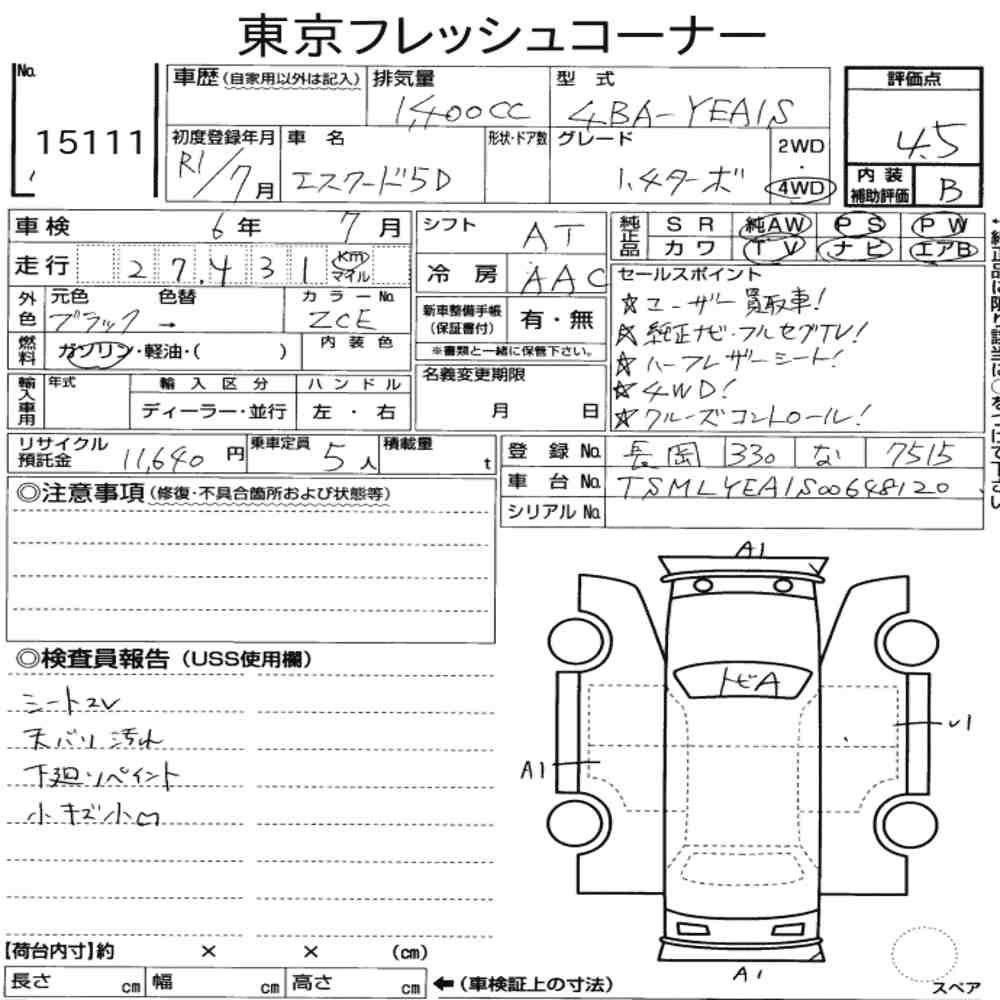 東京フレッシュコーナー
No. 15111
車歴(自家用以外は記入)
排気量 1,400cc
型式 4BA-YEA1S
評価点 4.5
初度登録年月 R1/7月
車名 エスクード5D
形状・ドア数
グレード 1.4ターボ
2WD・4WD
内装補助評価 B
車検 6年 7月
シフト AT
純正品 SR 純AW PS PW
カワ TV ナビ エアB
走行 27,431 Km マイル
冷房 AAC
セールスポイント
☆ユーザー買取車!
☆純正ナビ・フルセグTV!
☆ハーフレザーシート!
☆4WD!
☆クルーズコントロール!
外色 元色 ブラック → 色替
カラーNo. ZCE
新車整備手帳(保証書付) 有・無
※書類と一緒に保管下さい。
燃料 ガソリン・軽油・( )
内装色
名義変更期限 月 日
輸入車用 年式
輸入区分 ディーラー・並行
ハンドル 左・右
リサイクル預託金 11,640円
乗車定員 5人
積載量 t
登録No. 長岡 330 な 7515
車台No. TSMLYEA1S00648120
シリアルNo.
◎注意事項(修復・不具合箇所および状態等)
◎検査員報告(USS使用欄)
シートスレ
天バリ汚れ
下廻りペイント
小キズ小凹
A1
トビA
A1
A1
スペア
【荷台内寸】約 × × (cm)
長さ cm 幅 cm 高さ cm ←(車検証上の寸法)